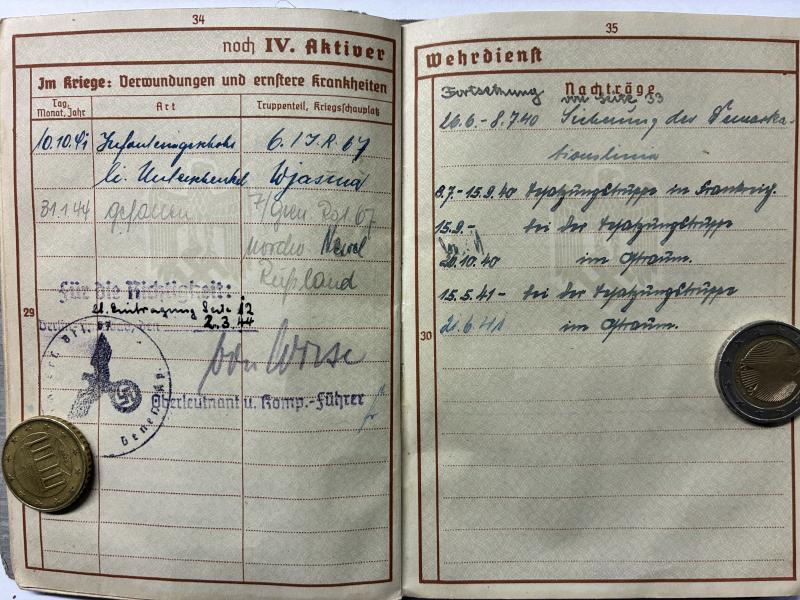 34
noch IV. Aktiver
Im Kriege: Verwundungen und ernstere Krankheiten
Tag, Monat, Jahr
Art
Truppenteil, Kriegsschauplatz
10.10.41 Infanteriegeschoß 6./I.R. 67
li. Unterschenkel Wjasma
31.1.44 gefallen 7/Gren Rgt. 67
nordw Newel
Rußland
Für die Richtigkeit:
Eintragung Seite 12
2.3.44
Oberleutnant u. Komp.-Führer
29
35
Wehrdienst
Nachträge
Fortsetzung von Seite 33
26.6-8.7.40 Sicherung der Demarka-
tionslinie
8.7.-15.9.40 Besatzungstruppe in Frankreich.
15.9- bei der Besatzungstruppe
20.10.40 im Ostraum.
15.5.41- bei der Besatzungstruppe
21.6.41 im Ostraum.
30